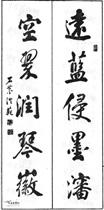 遠藍侵墨瀋
空翠潤琴徽